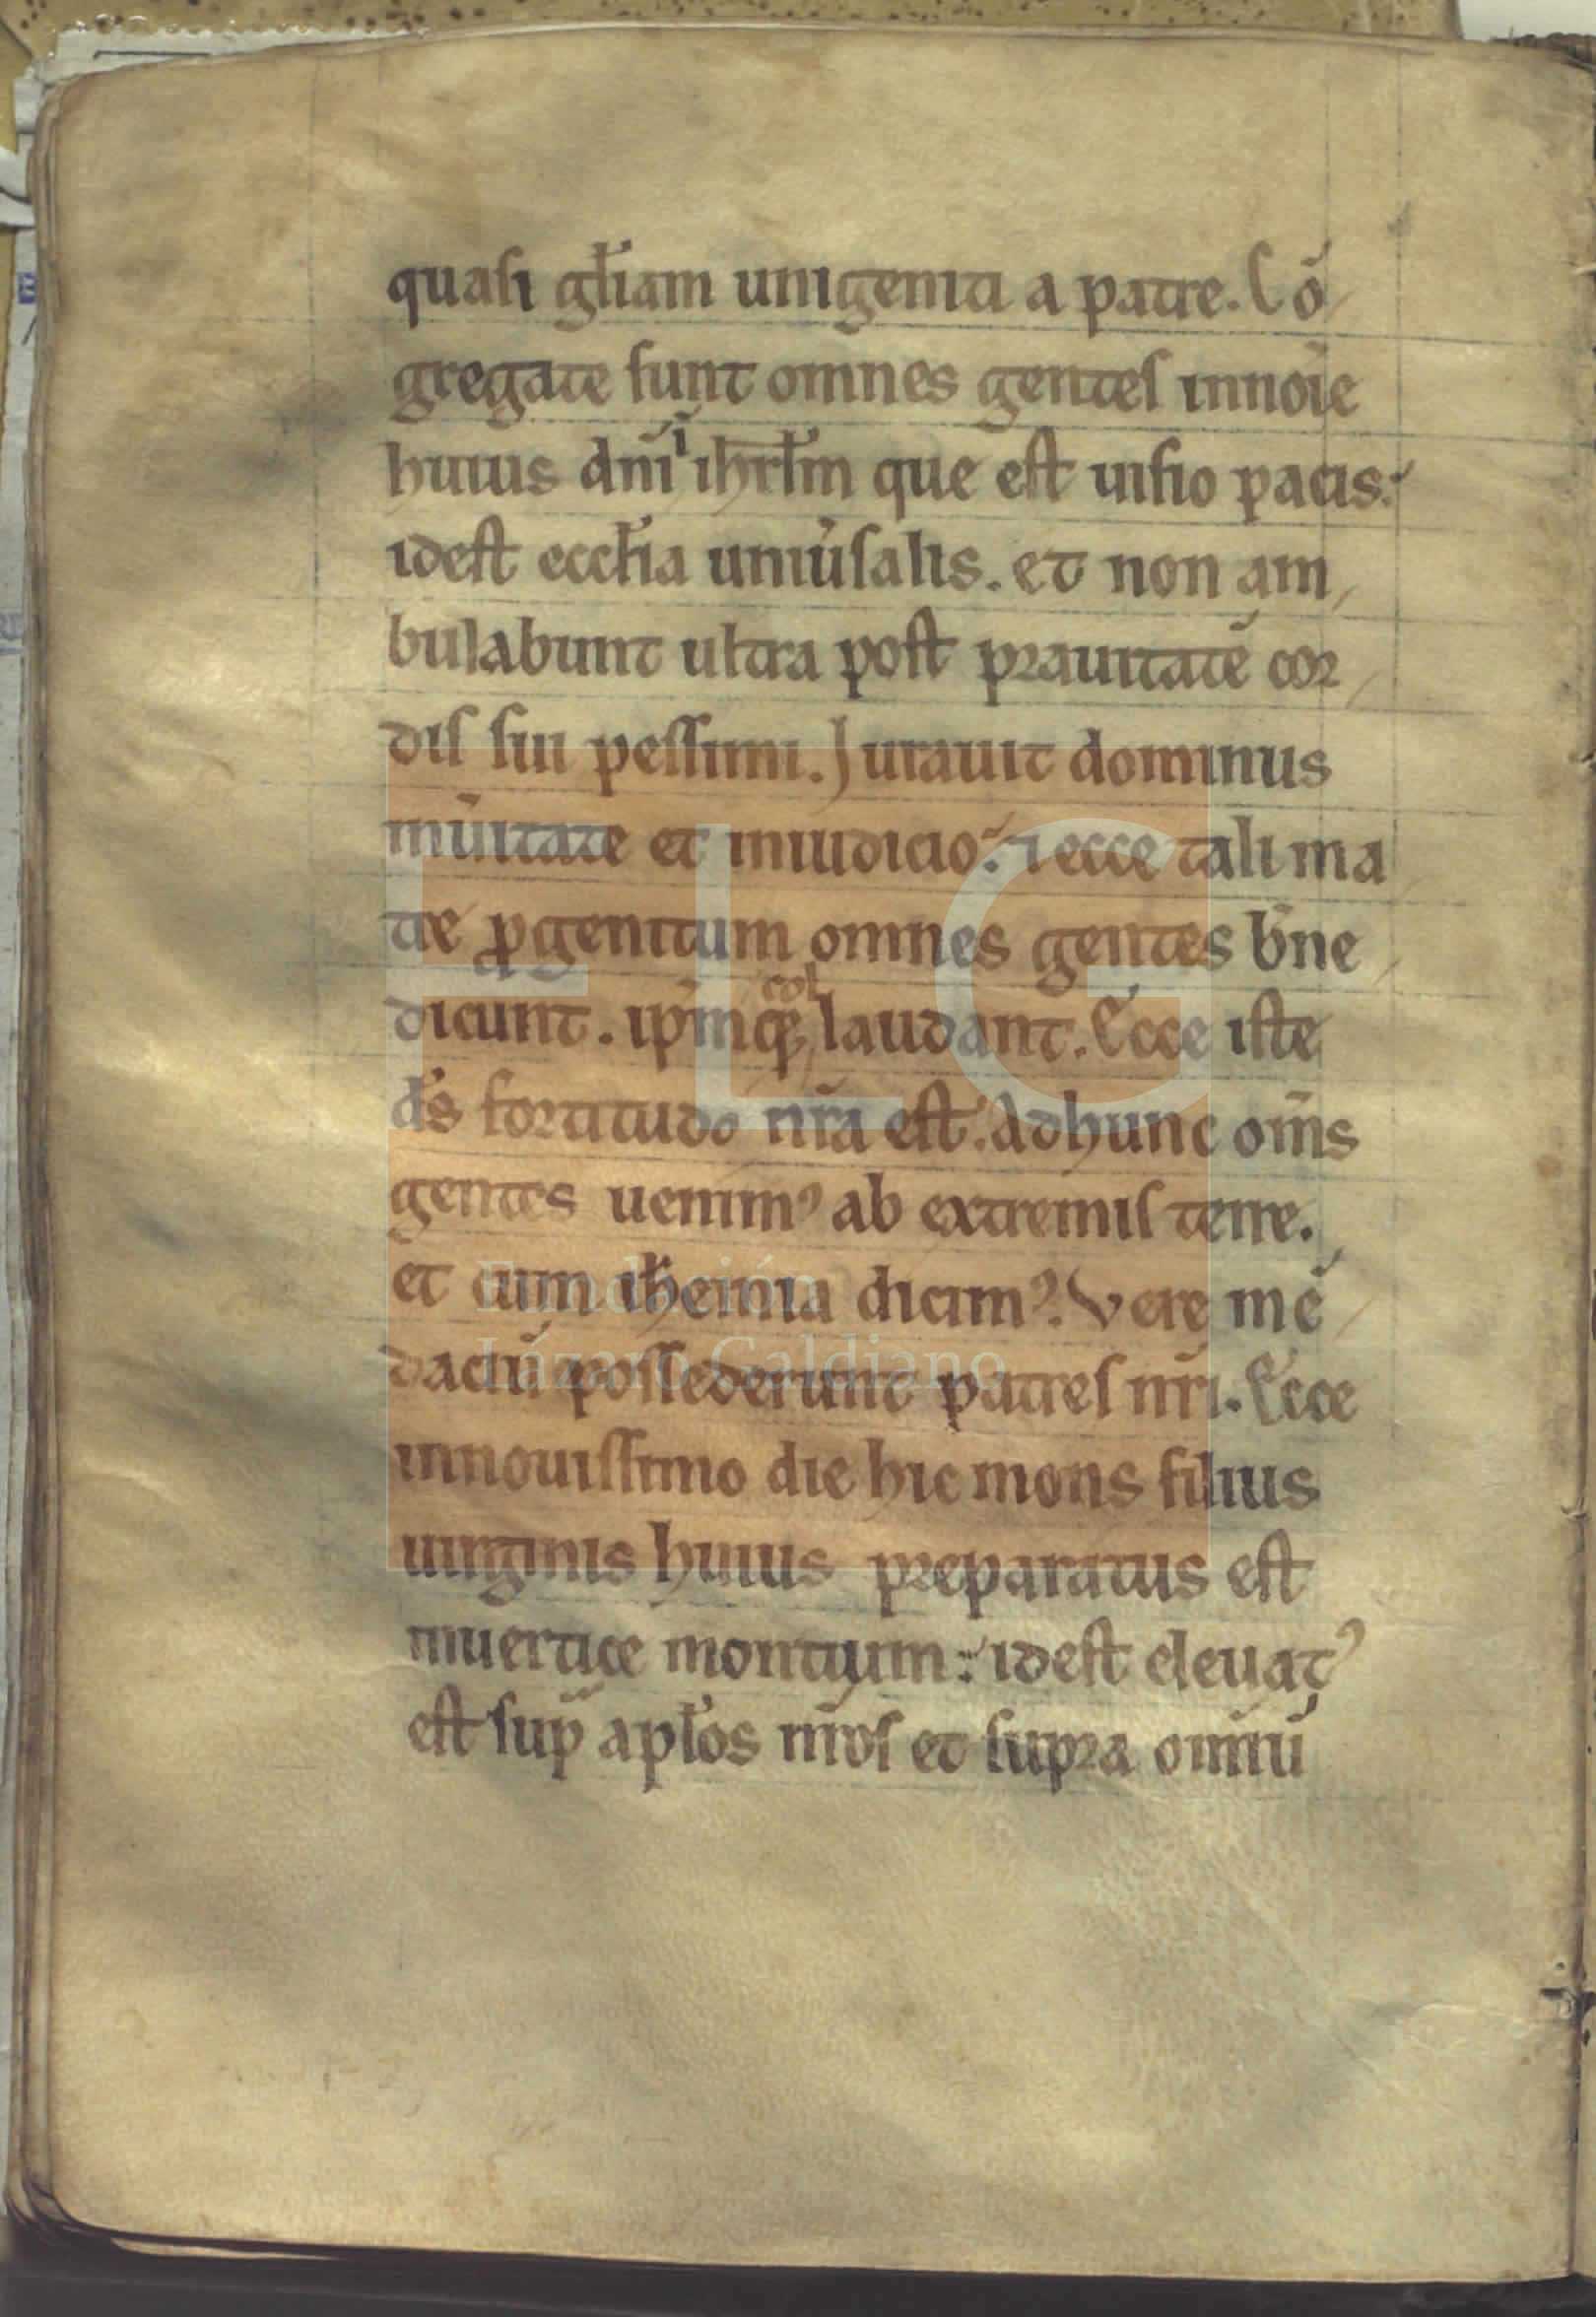 quasi gl̄iam unigeniti a patre. Cō
gregate sunt omnes gentes innoīe
huius dn̄i ı ihrl̄m que est uisio pacis:
idest eccl̄ia uniu̓salis. et non am
bulabunt ultra post prauitatē cor
dis sui pessimi. Jurauit dominus
inu̓itate et iniudicio: ⁊ ecce tali ma
tre ꝓgenitum omnes gentes bn̄e
dicunt. ip̄mq; col laudant. Ecce iste
d̄s fortitudo nr̄a est. Adhunc om̄s
gentes uenimꝰ ab extremis terre.
et cum ih̄emia dicimꝰ. Vere mē
daciū possederunt patres nr̄i. Ecce
innouissimo die hic mons filius
uirginis huius preparatus est
inuertice montium: idest eleuatꝰ
est sup̄ apl̄os nr̄os et supra omniū
FLG
Fundación
Lázaro Galdiano